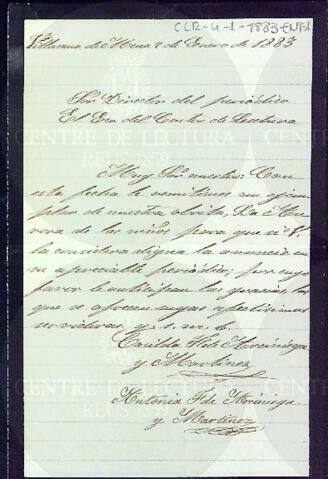 CLR-U-1-1883-ENT-1
Villarana de Mena 2 de Enero de 1883
Sor Director del periódico
El Eco del Centro de Lectura
Muy Sor nuestro: Con
esta fecha le remitimos un ejem
plar de nuestra obrita, La
de los niños para que si V.
la considera digna, la anuncie en
su apreciable periódico; por cuyo
favor le anticipan las gracias las
que se ofrecen suyas afectísimas
servidoras, q. s. m. b.
Casilda
y Martínez
Antonia F. de
y Martínez
CENTRE DE LECTURA
REUS 1859
CENTRE DE LECTURA
REUS 1859